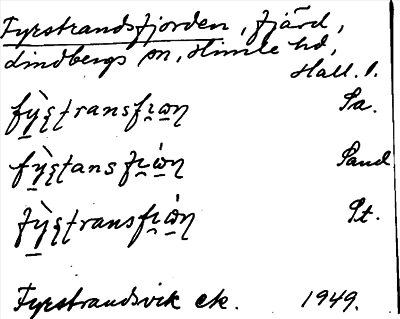 Fyrstrandsfjorden, fjärd,
Lindbergs sn, Himle hd,
Hall. l.
fỳʂtransfi̯ωη Sa.
fỳʂtans fi̯ώη Sand
fỳʂtransfi̯ώη St.
Fyrstrandsvik ek. 1949.